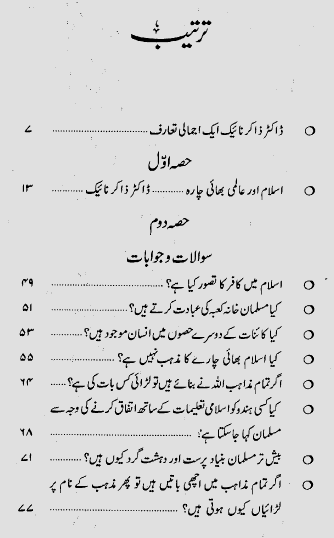 ترتیب
○ ڈاکٹر ذاکر نائیک ایک اجمالی تعارف ........................ ۷
حصہ اوّل
○ اسلام اور عالمی بھائی چارہ ........... ڈاکٹر ذاکر نائیک ........... ۱۳
حصہ دوم
سوالات و جوابات
○ اسلام میں کافر کا تصور کیا ہے؟ ........................ ۴۹
○ کیا مسلمان خانہ کعبہ کی عبادت کرتے ہیں؟ ........................ ۵۱
○ کیا کائنات کے دوسرے حصوں میں انسان موجود ہیں؟ ................ ۵۳
○ کیا اسلام بھائی چارے کا مذہب نہیں ہے؟ ........................ ۵۵
○ اگر تمام مذاہب اللہ نے بنائے ہیں تو لڑائی کس بات کی ہے؟ ............ ۶۴
○ کیا کسی ہندو کو اسلامی تعلیمات کے ساتھ اتفاق کرنے کی وجہ سے
مسلمان کہا جا سکتا ہے؟ ........................ ۶۸
○ بیش تر مسلمان بنیاد پرست اور دہشت گرد کیوں ہیں؟ ................ ۷۱
○ اگر تمام مذاہب میں اچھی باتیں ہیں تو پھر مذہب کے نام پر
لڑائیاں کیوں ہوتی ہیں؟ ........................ ۷۷